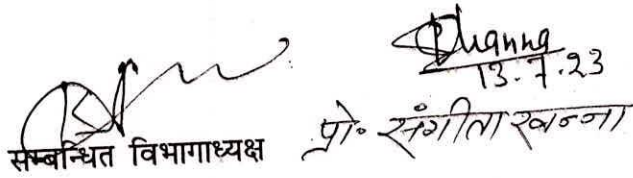 Khanna
13.7.23
सम्बन्धित विभागाध्यक्ष
प्रो॰ संगीता खन्ना